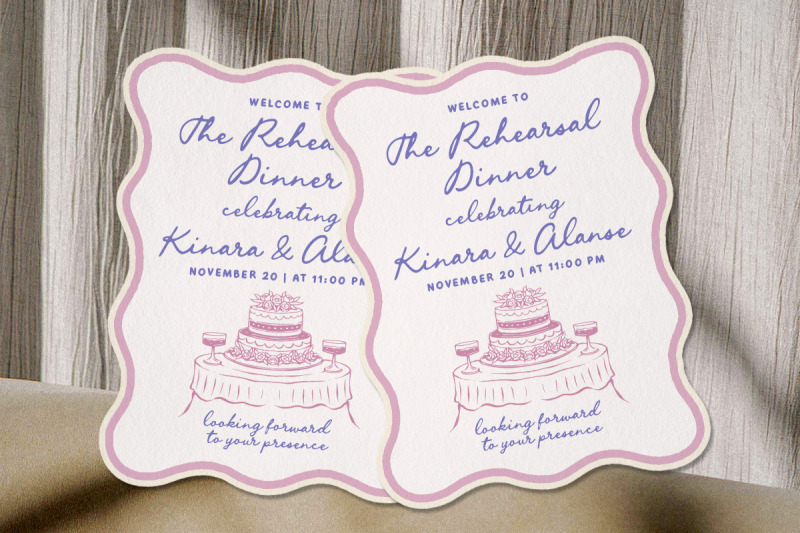 WELCOME TO
The Rehea
Dinner
celebrating
Kinara & Ala
NOVEMBER 20 | AT 11:00 PM
looking forward
to your presence
WELCOME TO
The Rehearsal
Dinner
celebrating
Kinara & Alanse
NOVEMBER 20 | AT 11:00 PM
looking forward
to your presence